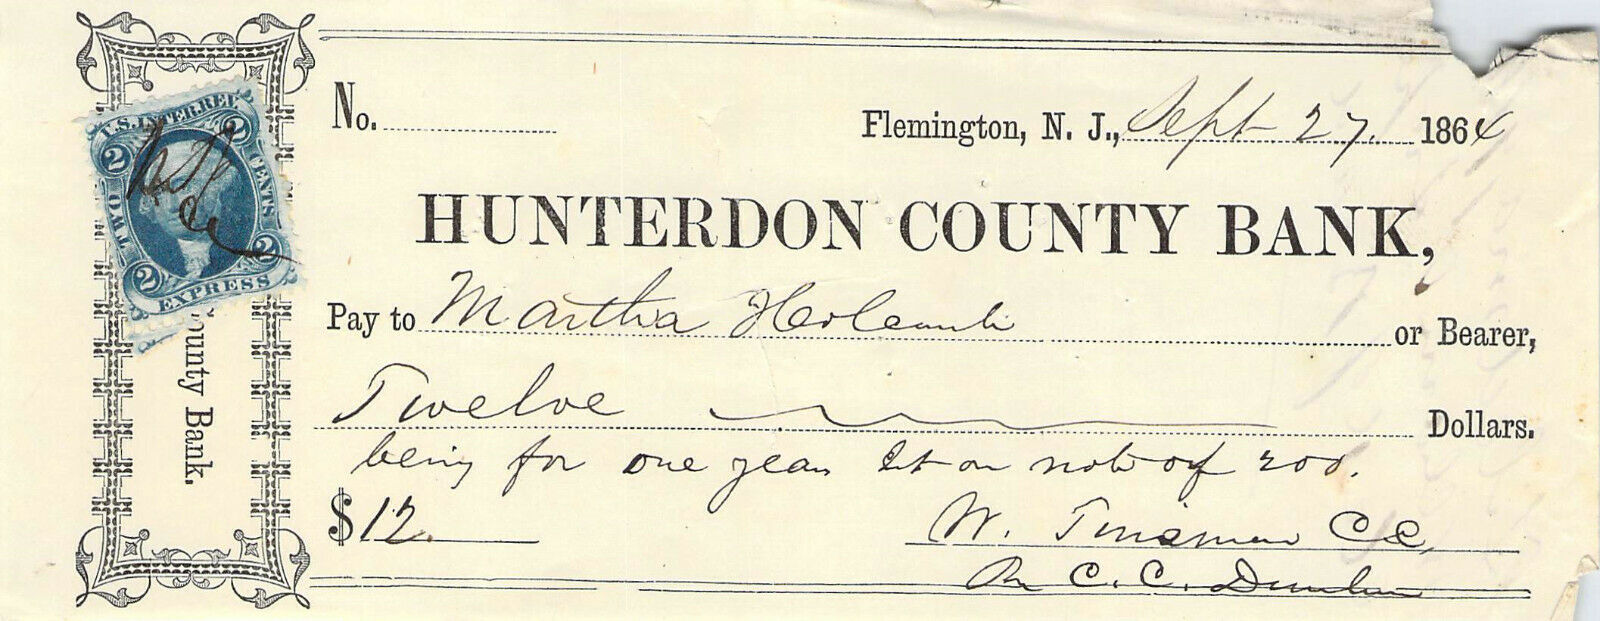 No.
Flemington, N. J., Sept 27. 1864
HUNTERDON COUNTY BANK,
Pay to Martha Holcomb or Bearer,
Twelve Dollars.
being for one year Int on note of 200.
$12.
W. Tinsman CC,
C. C. Dunham
U.S. INTER. REV.
2 2
TWO CENTS
2 2
EXPRESS
County Bank.